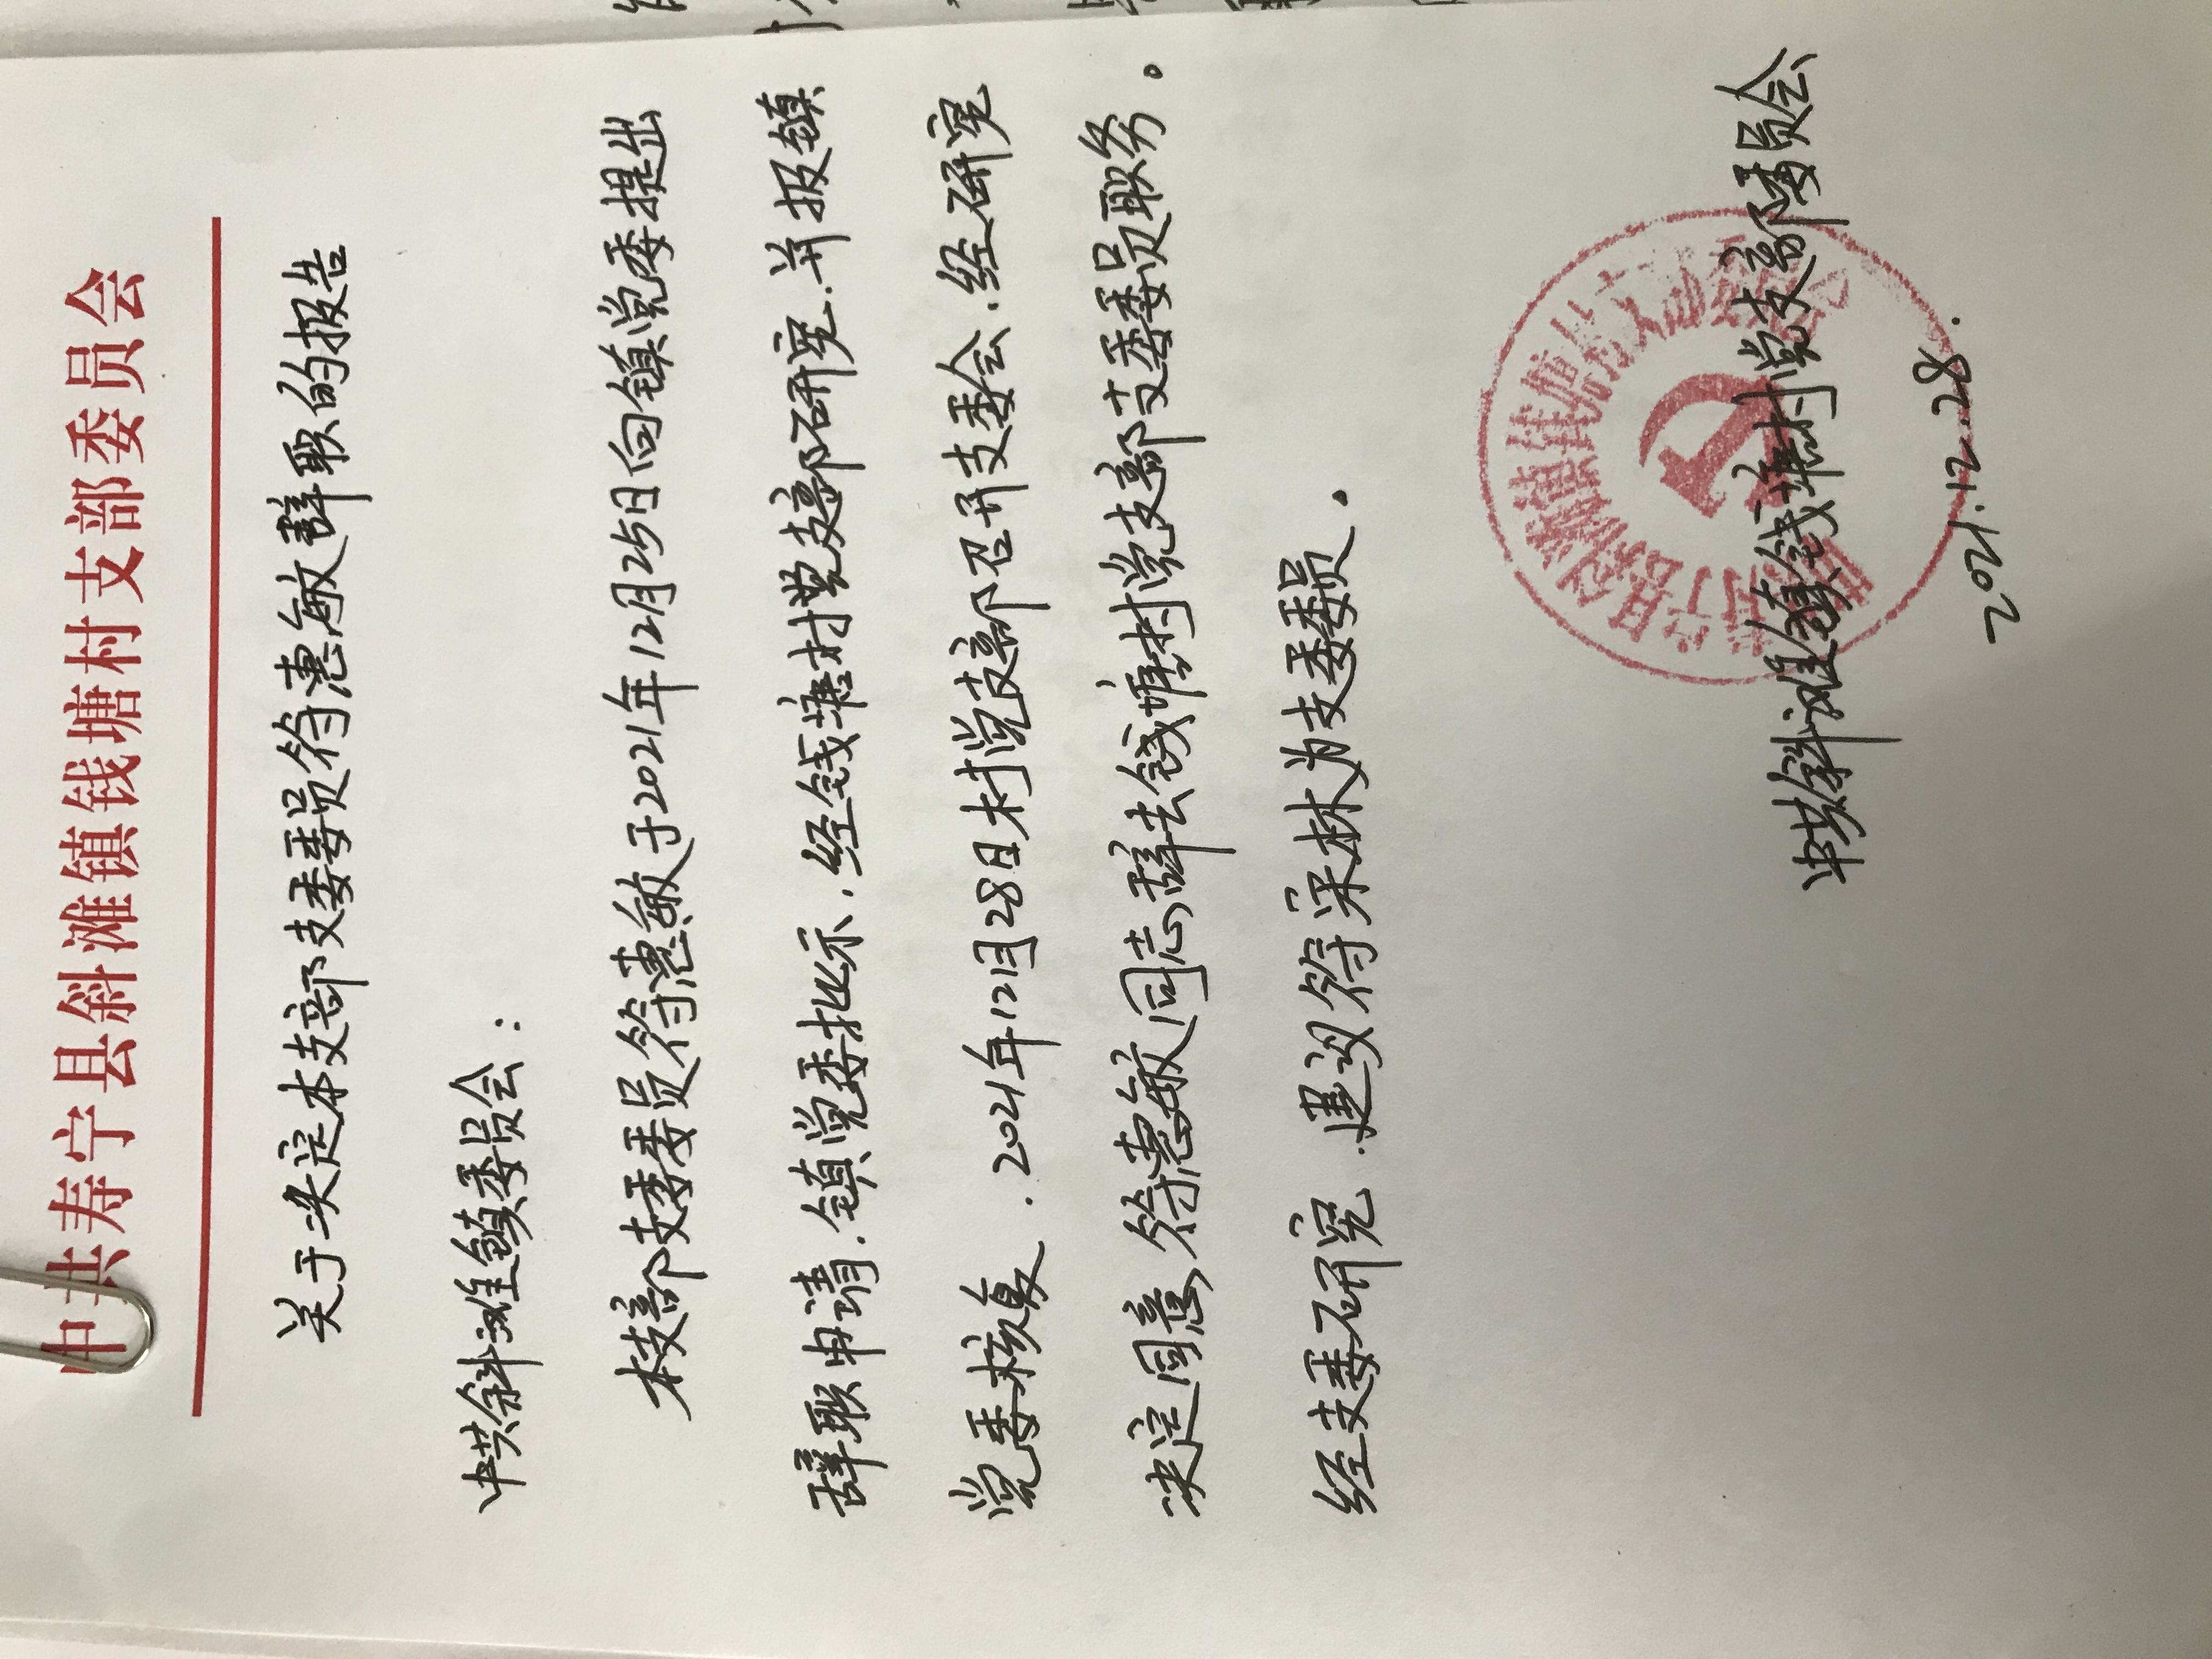 中共寿宁县斜滩镇钱塘村支部委员会
关于决定本支部支委委员符惠敏辞职的报告
中共斜滩镇委员会：
本支部支委委员符惠敏于2021年12月25日向镇党委提出
辞职申请.镇党委批示.经钱塘村党支部研究.并报镇
党委核复.2021年12月28日村党支部召开支委会.经研究
决定同意符惠敏同志辞去钱塘村党支部支委委员职务。
经支委研究.建议符采林为支委委员。
中共斜滩镇钱塘村党支部委员会
2021.12.28.